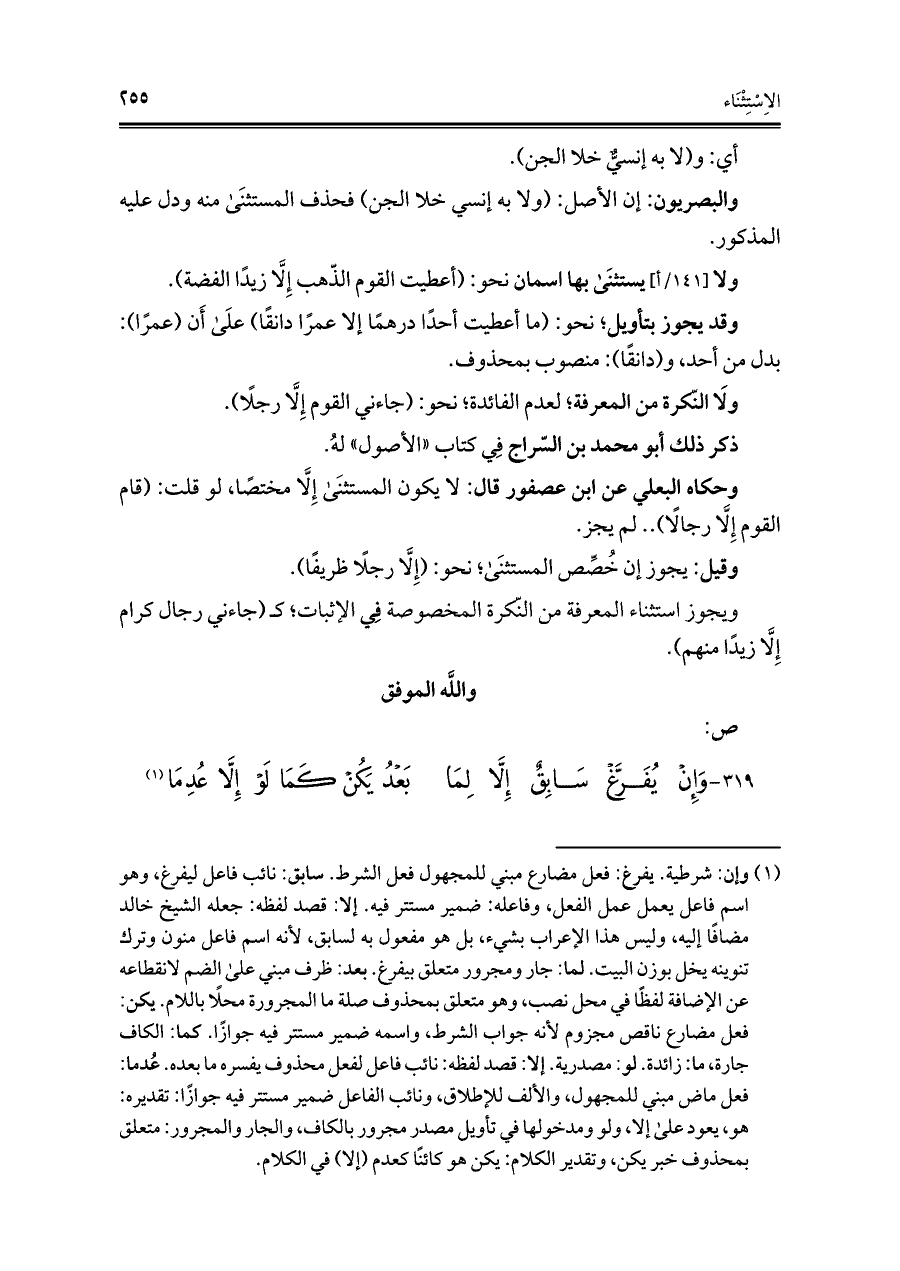 الِاسْتِثْنَاء ٢٥٥
أي: و(لا به إنسيٌّ خلا الجن).
والبصريون: إن الأصل: (ولا به إنسي خلا الجن) فحذف المستثنَىٰ منه ودل عليه
المذكور.
ولا [١٤١/أ] يستثنَىٰ بها اسمان نحو: (أعطيت القوم الذّهب إِلَّا زيدًا الفضة).
وقد يجوز بتأويل؛ نحو: (ما أعطيت أحدًا درهمًا إلا عمرًا دانقًا) علَىٰ أَن (عمرًا):
بدل من أحد، و(دانقًا): منصوب بمحذوف.
ولَا النّكرة من المعرفة؛ لعدم الفائدة؛ نحو: (جاءني القوم إِلَّا رجلًا).
ذكر ذلك أبو محمد بن السّراج فِي كتاب «الأصول» لهُ.
وحكاه البعلي عن ابن عصفور قال: لا يكون المستثنَىٰ إِلَّا مختصًا، لو قلت: (قام
القوم إِلَّا رجالًا).. لم يجز.
وقيل: يجوز إن خُصِّص المستثنَىٰ؛ نحو: (إِلَّا رجلًا ظريفًا).
ويجوز استثناء المعرفة من النّكرة المخصوصة فِي الإثبات؛ كـ (جاءني رجال كرام
إِلَّا زيدًا منهم).
واللَّه الموفق
ص:
٣١٩-وَإِنْ يُفَـرَّغْ سَـابِقٌ إِلَّا لِمَا بَعْدُ يَكُنْ كَمَا لَوْ إِلَّا عُدِمَا(١)
(١) وإن: شرطية. يفرغ: فعل مضارع مبني للمجهول فعل الشرط. سابق: نائب فاعل ليفرغ، وهو
اسم فاعل يعمل عمل الفعل، وفاعله: ضمير مستتر فيه. إلا: قصد لفظه: جعله الشيخ خالد
مضافًا إليه، وليس هذا الإعراب بشيء، بل هو مفعول به لسابق، لأنه اسم فاعل منون وترك
تنوينه يخل بوزن البيت. لما: جار ومجرور متعلق بيفرغ. بعد: ظرف مبني علىٰ الضم لانقطاعه
عن الإضافة لفظًا في محل نصب، وهو متعلق بمحذوف صلة ما المجرورة محلًا باللام. يكن:
فعل مضارع ناقص مجزوم لأنه جواب الشرط، واسمه ضمير مستتر فيه جوازًا. كما: الكاف
جارة، ما: زائدة. لو: مصدرية. إلا: قصد لفظه: نائب فاعل لفعل محذوف يفسره ما بعده. عُدما:
فعل ماض مبني للمجهول، والألف للإطلاق، ونائب الفاعل ضمير مستتر فيه جوازًا: تقديره:
هو، يعود علىٰ إلا، ولو ومدخولها في تأويل مصدر مجرور بالكاف، والجار والمجرور: متعلق
بمحذوف خبر يكن، وتقدير الكلام: يكن هو كائنًا كعدم (إلا) في الكلام.